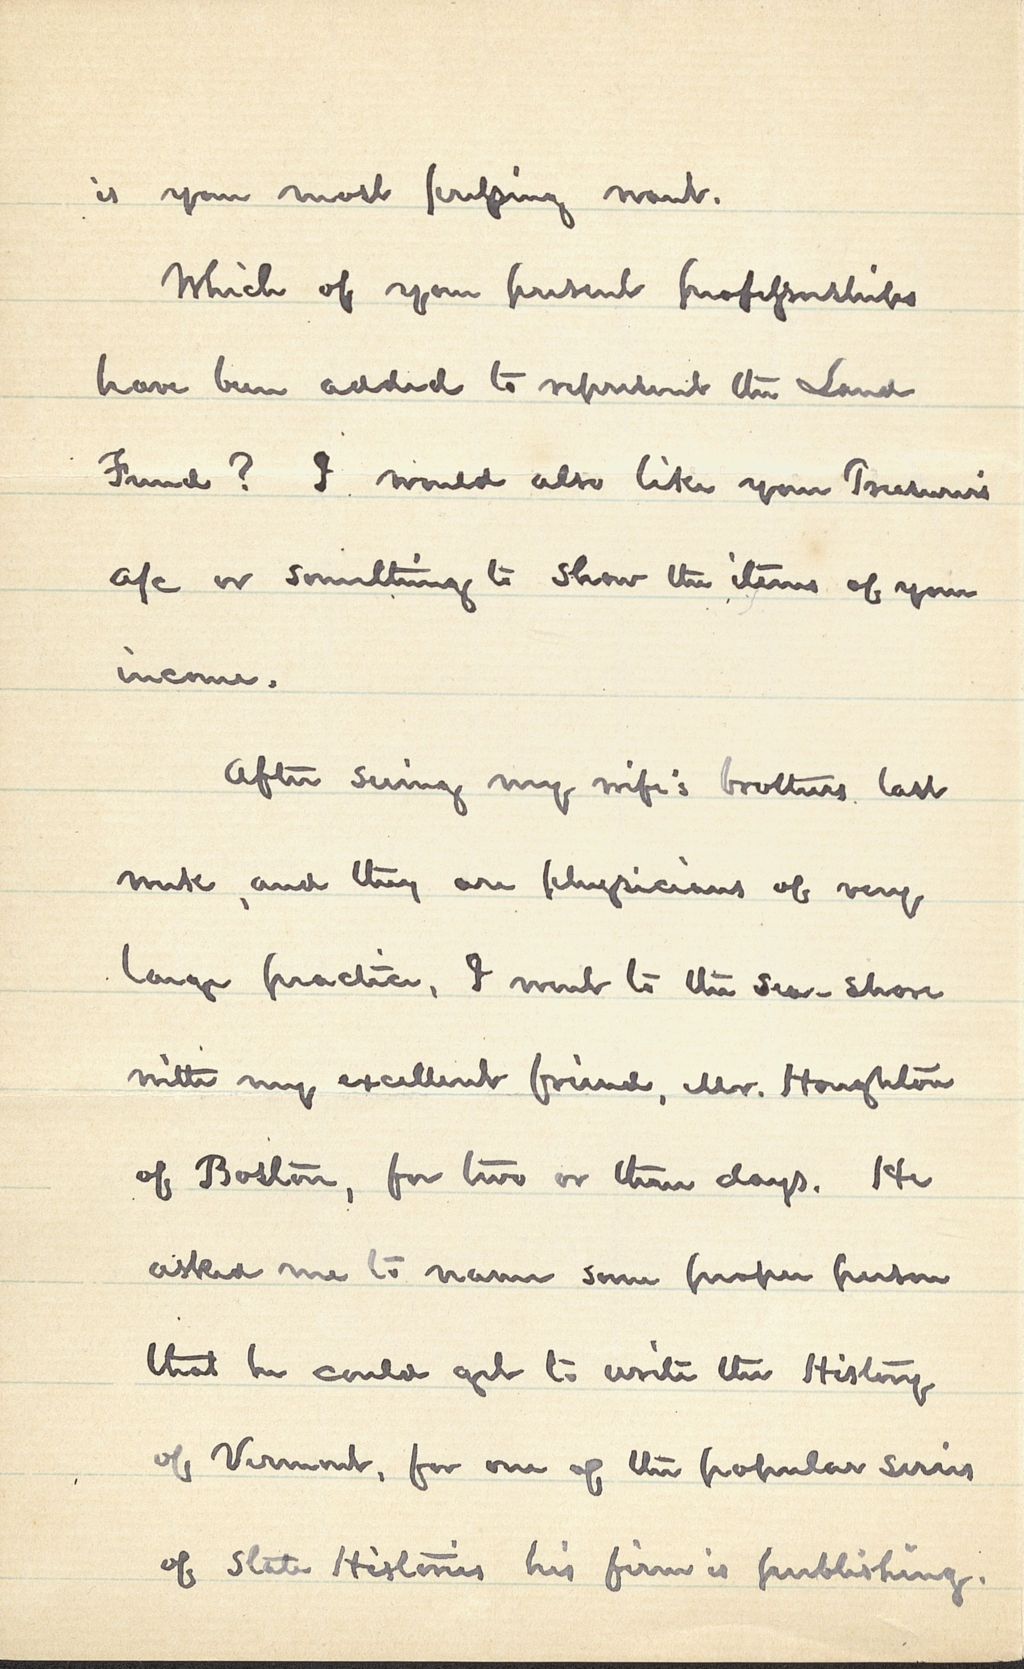 is your most pressing want.
Which of your present professorships
have been added to represent the Land
Fund? I would also like your Treasurer's
a/c or something to show the items of your
income.
After seeing my wife's brothers last
week, and they are physicians of very
large practice, I went to the sea-shore
with my excellent friend, Mr. Houghton
of Boston, for two or three days. He
asked me to name some proper person
that he could get to write the History
of Vermont, for one of the popular series
of State Histories his firm is publishing.